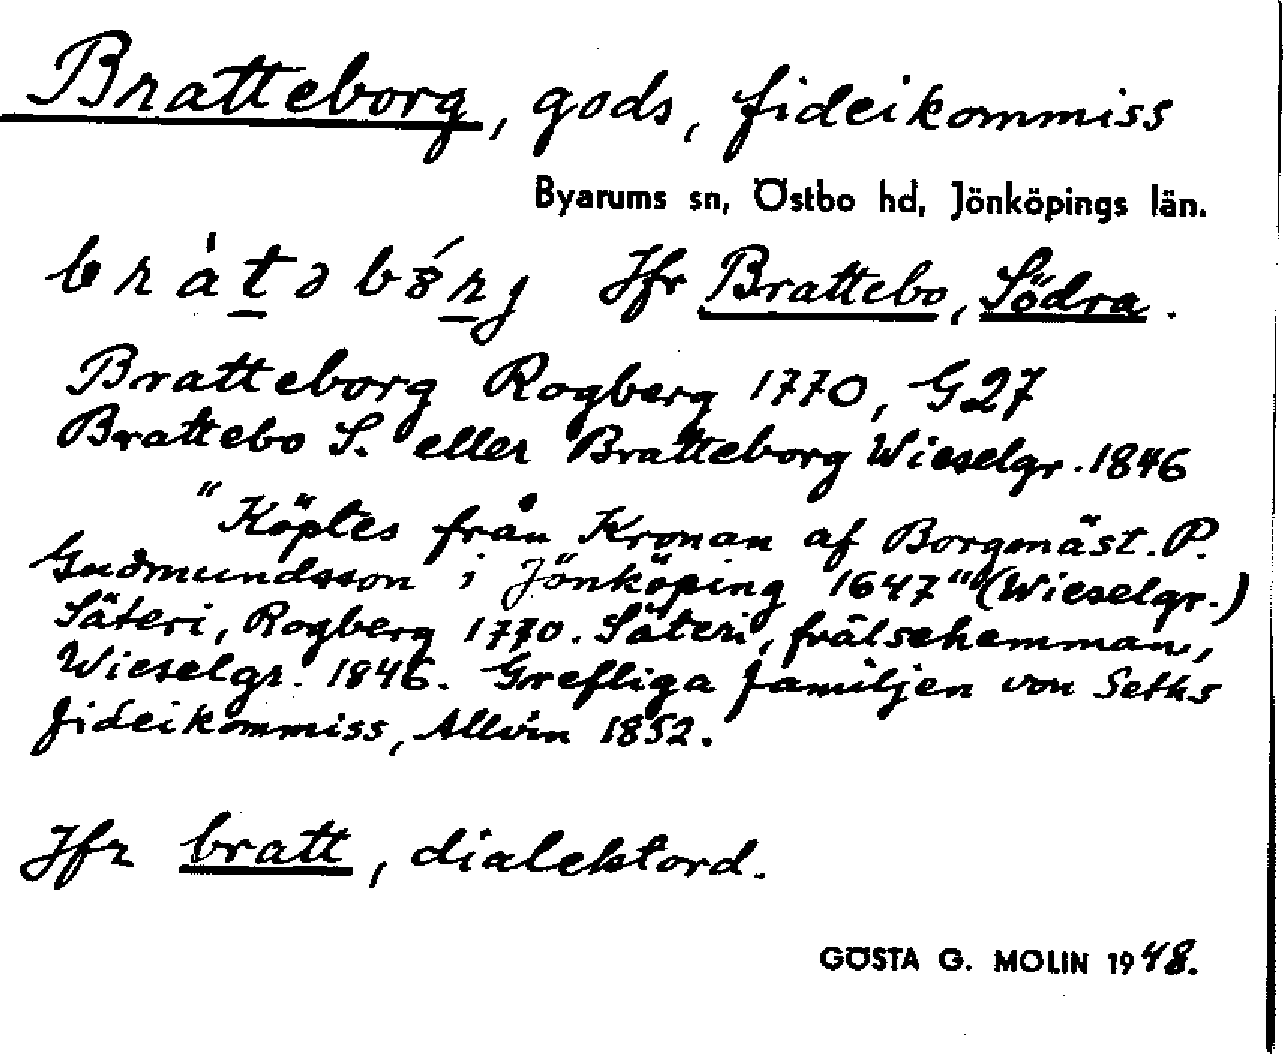 Bratteborg, gods, fideikommiss
Byarums sn, Östbo hd, Jönköpings län.
Jfr Brattebo, Södra.
Bratteborg Rogberg 1770, G27
Brattebo S. eller Bratteborg Wieselgr. 1846
"Köptes från Kronan af Borgmäst. P.
Gudmundsson i Jönköping 1647" (Wieselgr.)
Säteri, Rogberg 1770. Säteri, frälsehemman,
Wieselgr. 1846. Grefliga familjen von Seths
fideikommiss, Allvin 1852.
Jfr bratt, dialektord.
GÖSTA G. MOLIN 1948.